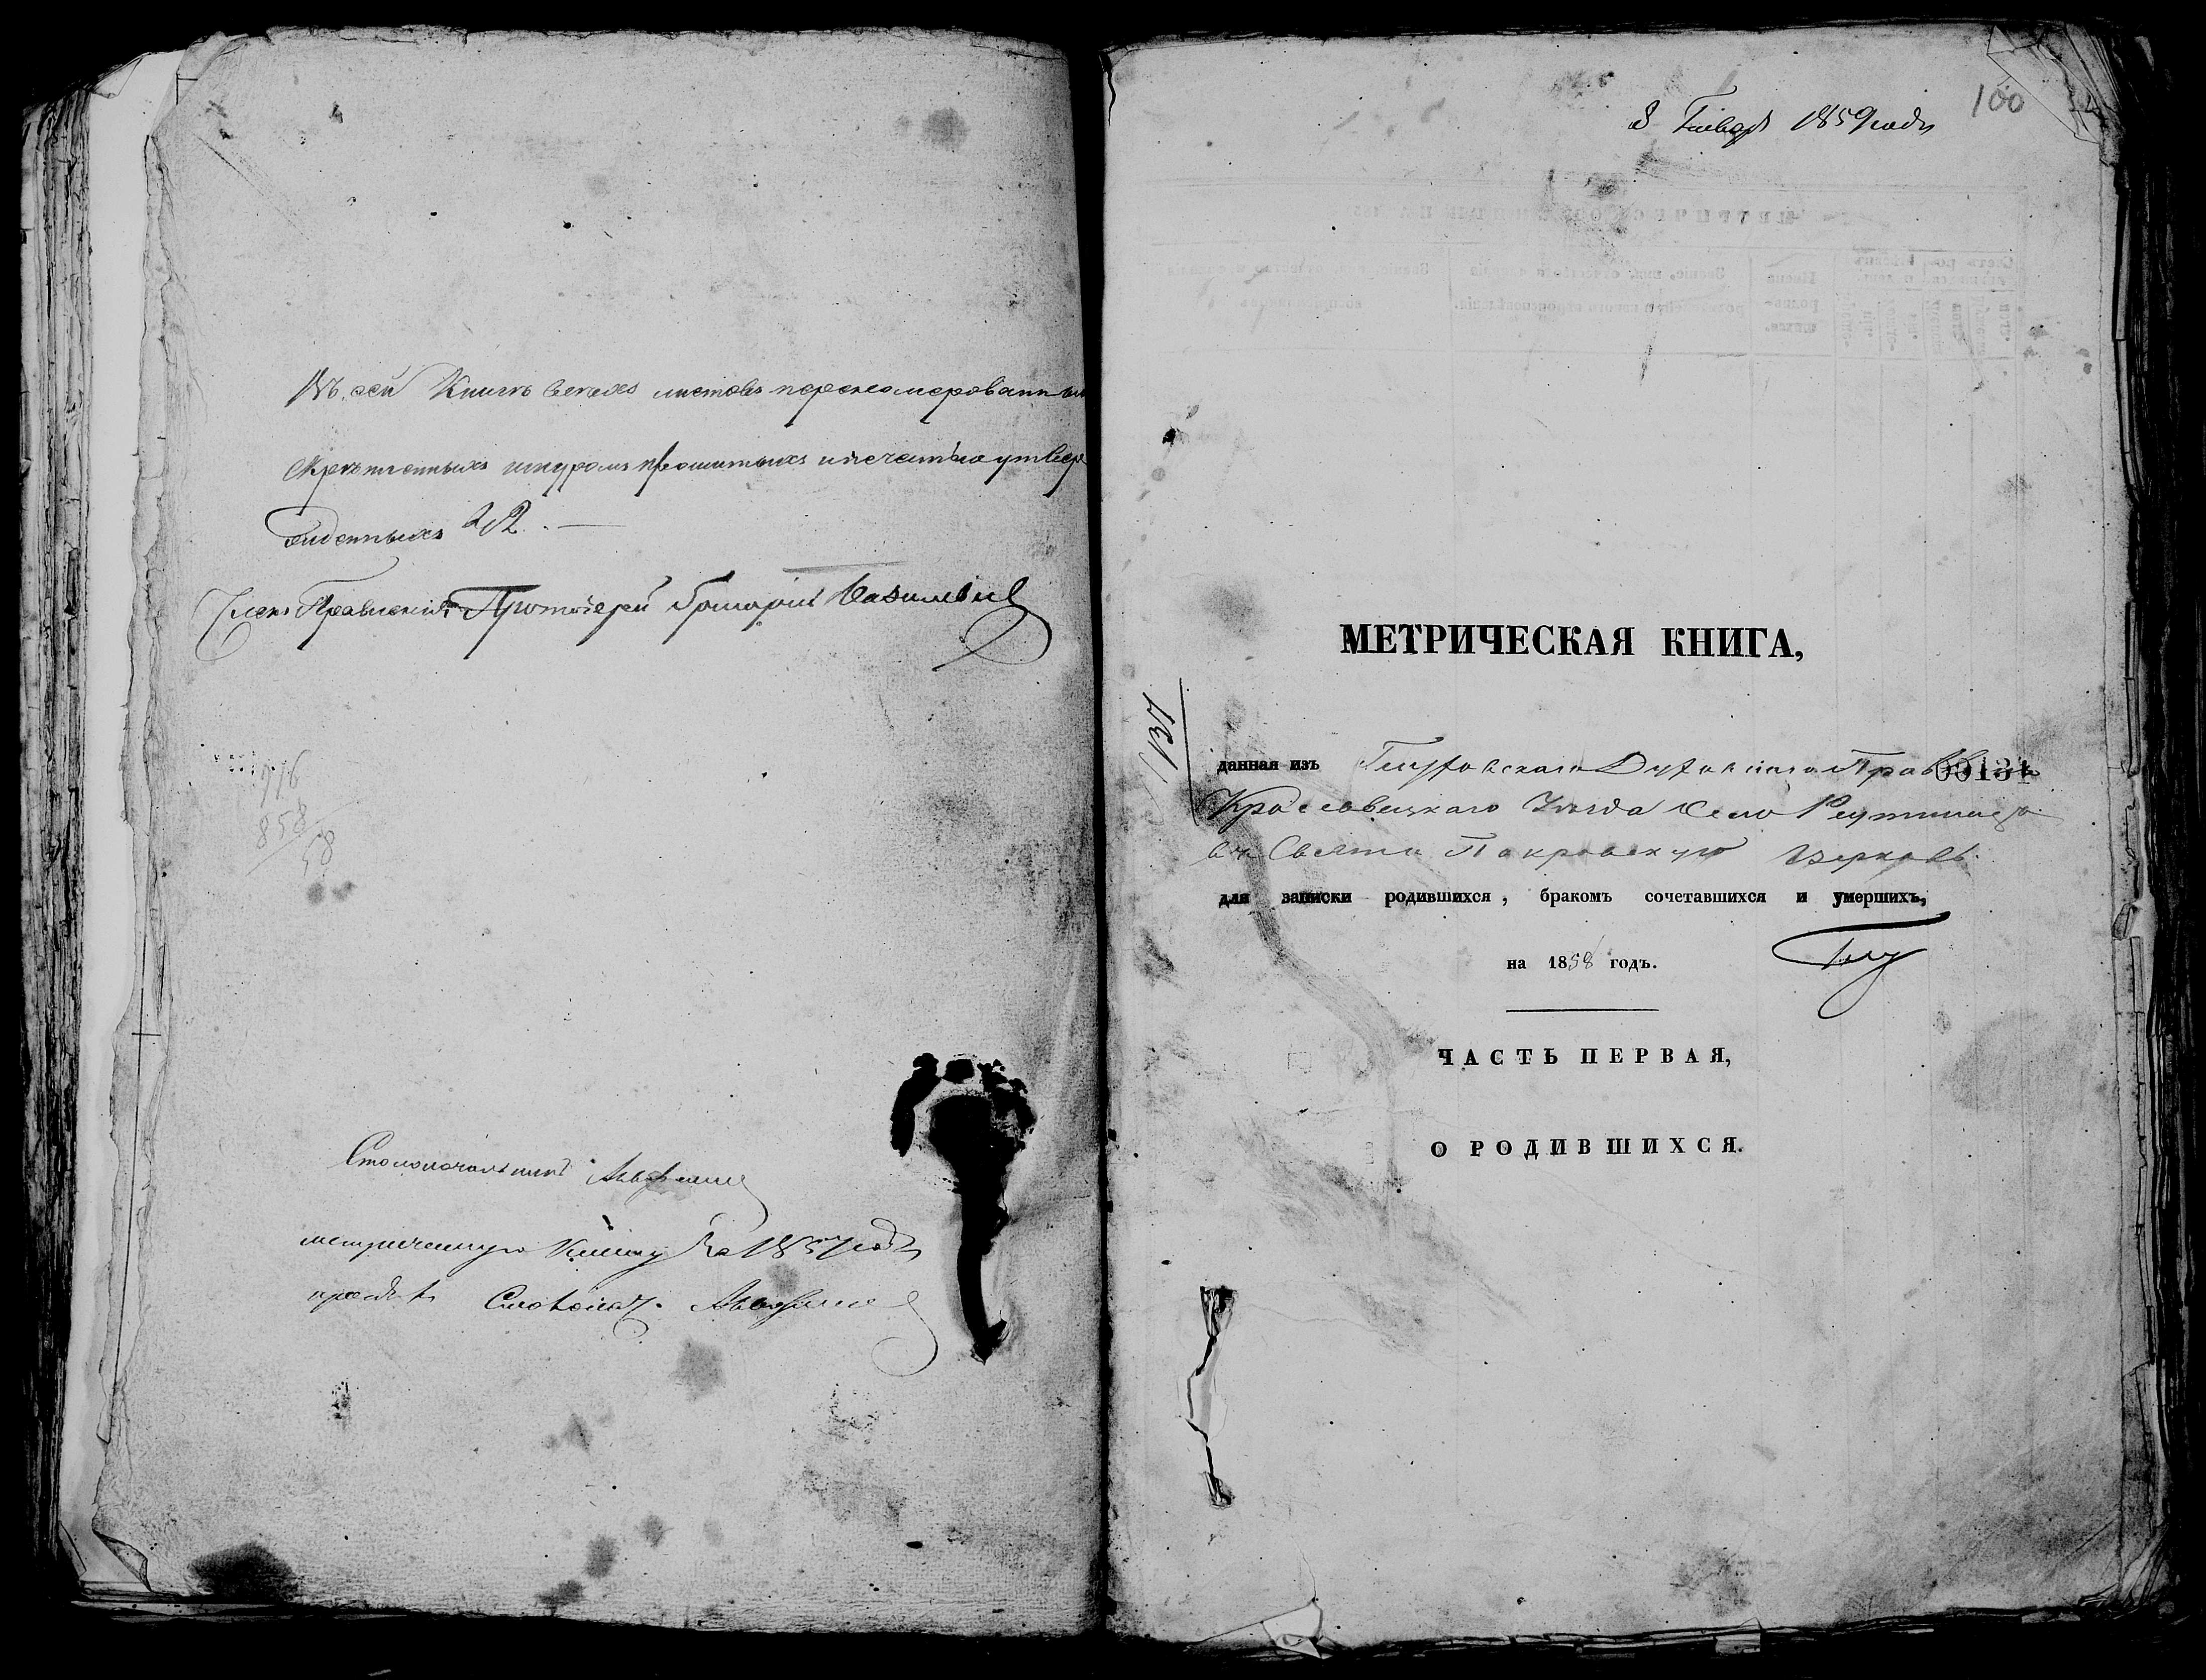 Въ сей Книгѣ всѣхъ листовъ перенумерованныхъ
скрѣпленныхъ шнуромъ прошитыхъ и печатью утвер
жденныхъ
Членъ Правленія Протоіерей Григорій
916
858
58
Столоначальникъ
метрическую Книгу за 1857 годъ
Столонач.
8 Генваря 1859 года
100
МЕТРИЧЕСКАЯ КНИГА,
131
данная изъ Глуховскаго Духовнаго Правленія
00131
Кролевецкаго Уѣзда Село Реутинцы
въ Свято Покровскую Церковь.
для записки родившихся, бракомъ сочетавшихся и умершихъ,
на 1858 годъ.
ЧАСТЬ ПЕРВАЯ,
О РОДИВШИХСЯ.